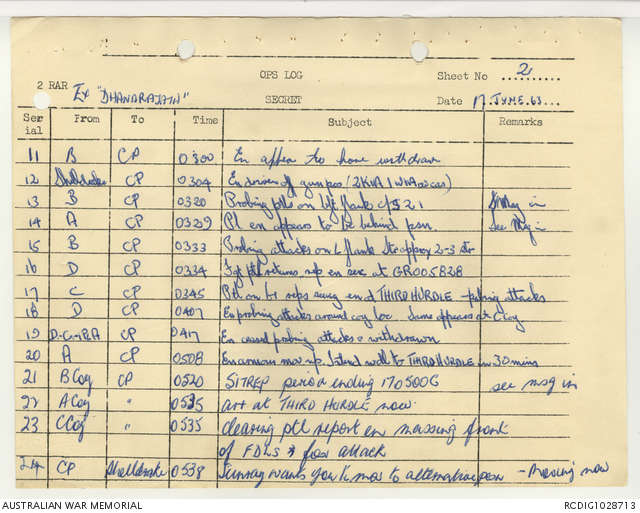 OPS LOG
Sheet No 2
2 RAR Ex "DHANARAJATA"
SECRET
Date 17 JUNE 63
Serial From To Time Subject Remarks
11 B CP 0300 En appear to have withdrawn
12 Shelldrake CP 0304 En driven off gun posn (2 KIA 1 WIA cas)
13 B CP 0320 Probing ptls on left flank c/s 21 Msg in
14 A CP 0329 Pl en appears to be behind psn. See Msg in
15 B CP 0333 Probing attacks on L flank Str approx 2-3
16 D CP 0334 ptl returns rep en sec at GR005828
17 C CP 0345 Ptl on rt reps en at THIRD HURDLE - probing attacks
18 D CP 0407 En probing attacks around coy loc. Same appears at C Coy
19 D-C- CP 0417 En ceased probing attacks & withdrawn
20 A CP 0508 En armour mov up. Intend wdl to THIRD HURDLE in 30 mins
21 B Coy CP 0520 SITREP period ending 170500G see msg in
22 A Coy " 0525 arr at THIRD HURDLE now.
23 C Coy " 0535 clearing ptl report en massing front
of FDLs for attack
24 CP Shelldrake 0538 Sunray wants you to move to alternative posn - Moving now
AUSTRALIAN WAR MEMORIAL
RCDIG1028713